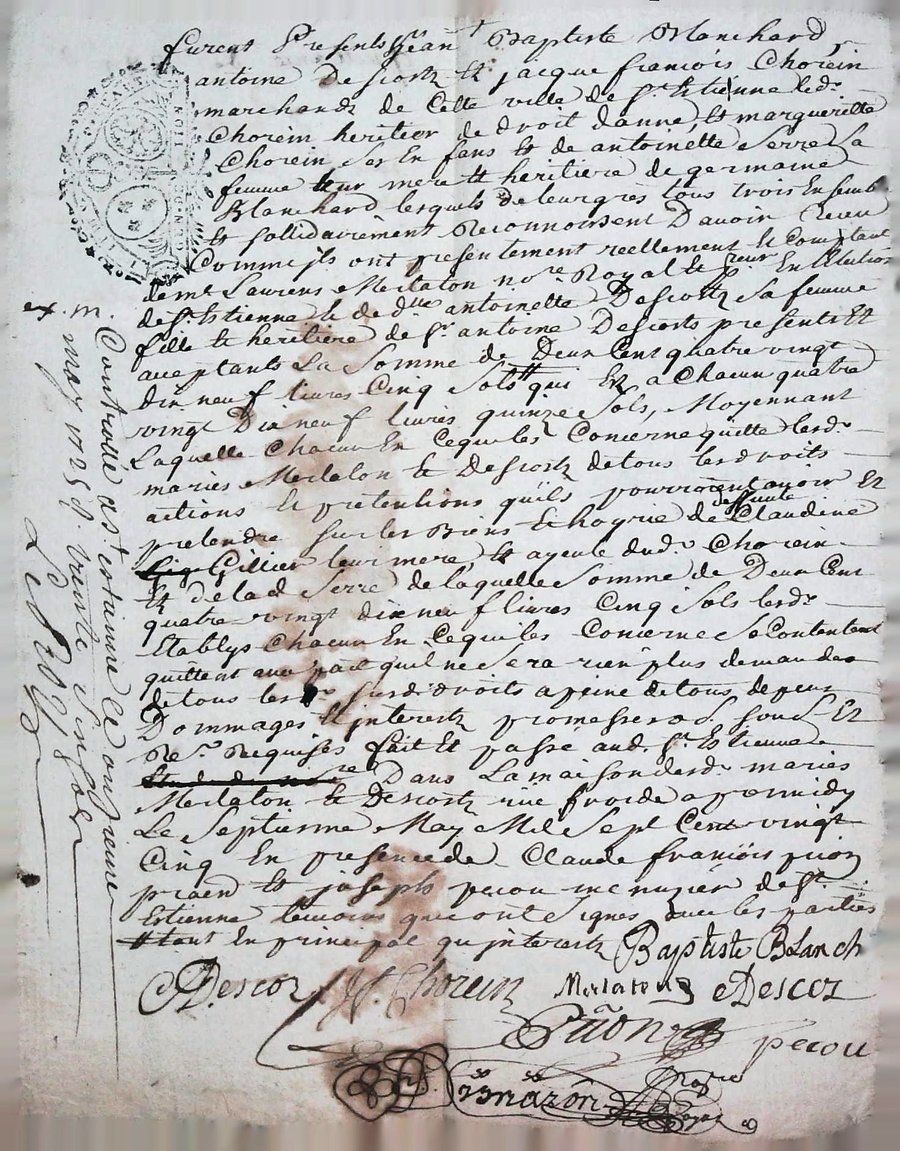 furent Presents Jean Baptiste Blanchard
antoine Descortz Et jacque françois Chorein
marchands de Cette ville de St. Estienne led.
Chorein heritier de droit danne, Et margueritte
Chorein Ses En fans Et de antoinette Serre La
femme leur mere Et heritiere de germaine
Blanchard lesquels de leur grés tous trois Ensemb.
Et sollidairement Reconnoissent Davoir Receu
Comme jls ont presentement reellement Et Comptant
de me. Laurens Merlaton nore. Royal Et En
de St. Estienne Et de dlle antoinette Descortz Sa femme
fille Et heritiere de Sr. antoine Descorts presents Et
acceptants La Somme de Deux Cent quatre vingt
dix neuf livres Cinq Sols qui Est a Chacun quatre
vingt Dix neuf livres quinze Sols, Moyennant
Laquelle Chacun En Cequi les Concerne quitte lesd.
mariés Merlaton Et Descortz de tous les droits
actions Et pretentions qu'ils pourroient avoir Et
pretendre sur les Biens Et hoyrie de deffunte Claudine
Gillier leur mere Et ayeule dud. Chorein
Et de lad Serre de laquelle Somme de Deux Cent
quatre vingt dix neuf livres Cinq Sols lesd.
Etablys Chacun En Cequi les Concerne Se Contentent
quittent avec pact qu'il ne Sera rien plus demandé
de tous les susd. droits a peine de tous depens
Dommages Et jnterests promesses Et
Requises fait Et passé aud. St. Estienne
Dans La maison desd. mariés
Merlaton Et Descortz rüe froide apres midy
Le Septienne May Mil Sept Cent vingt
Cinq En presence de Claude françois
Et joseph pecou menuzier de St.
Estienne temoins qui ont Signés avec les parties
tant En principal qu'jnterests
Baptiste BLanch
Descoz J. Chorein Merlaton Descoz
pecou
ex. m.
Controllé a St. estienne Ce onzieme
may 1725 R. trente Six Sols